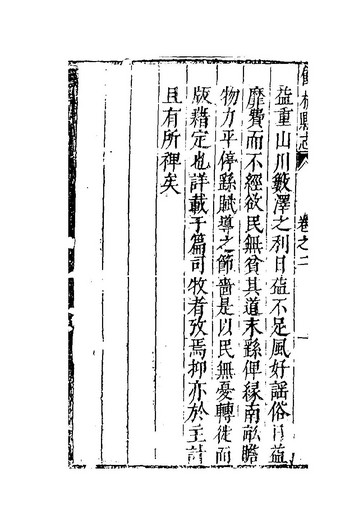 縣志
卷之二
益重山川藪澤之利日益不足風好謡俗日益
靡費而不經欲民無貧其道末繇俾緣南畝贍
物力平停繇賦導之節嗇是以民無憂轉徙而
版藉定也詳載于篇司牧者攷焉抑亦於主計
且有所裨矣